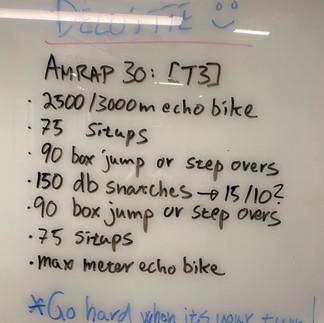 DELOITTE :)
AMRAP 30: [T3]
· 2500/3000m echo bike
· 75 situps
· 90 box jump or step overs
· 150 db snatches → 15/10?
· 90 box jump or step overs
· 75 situps
· max meter echo bike
*Go hard when its your turn!